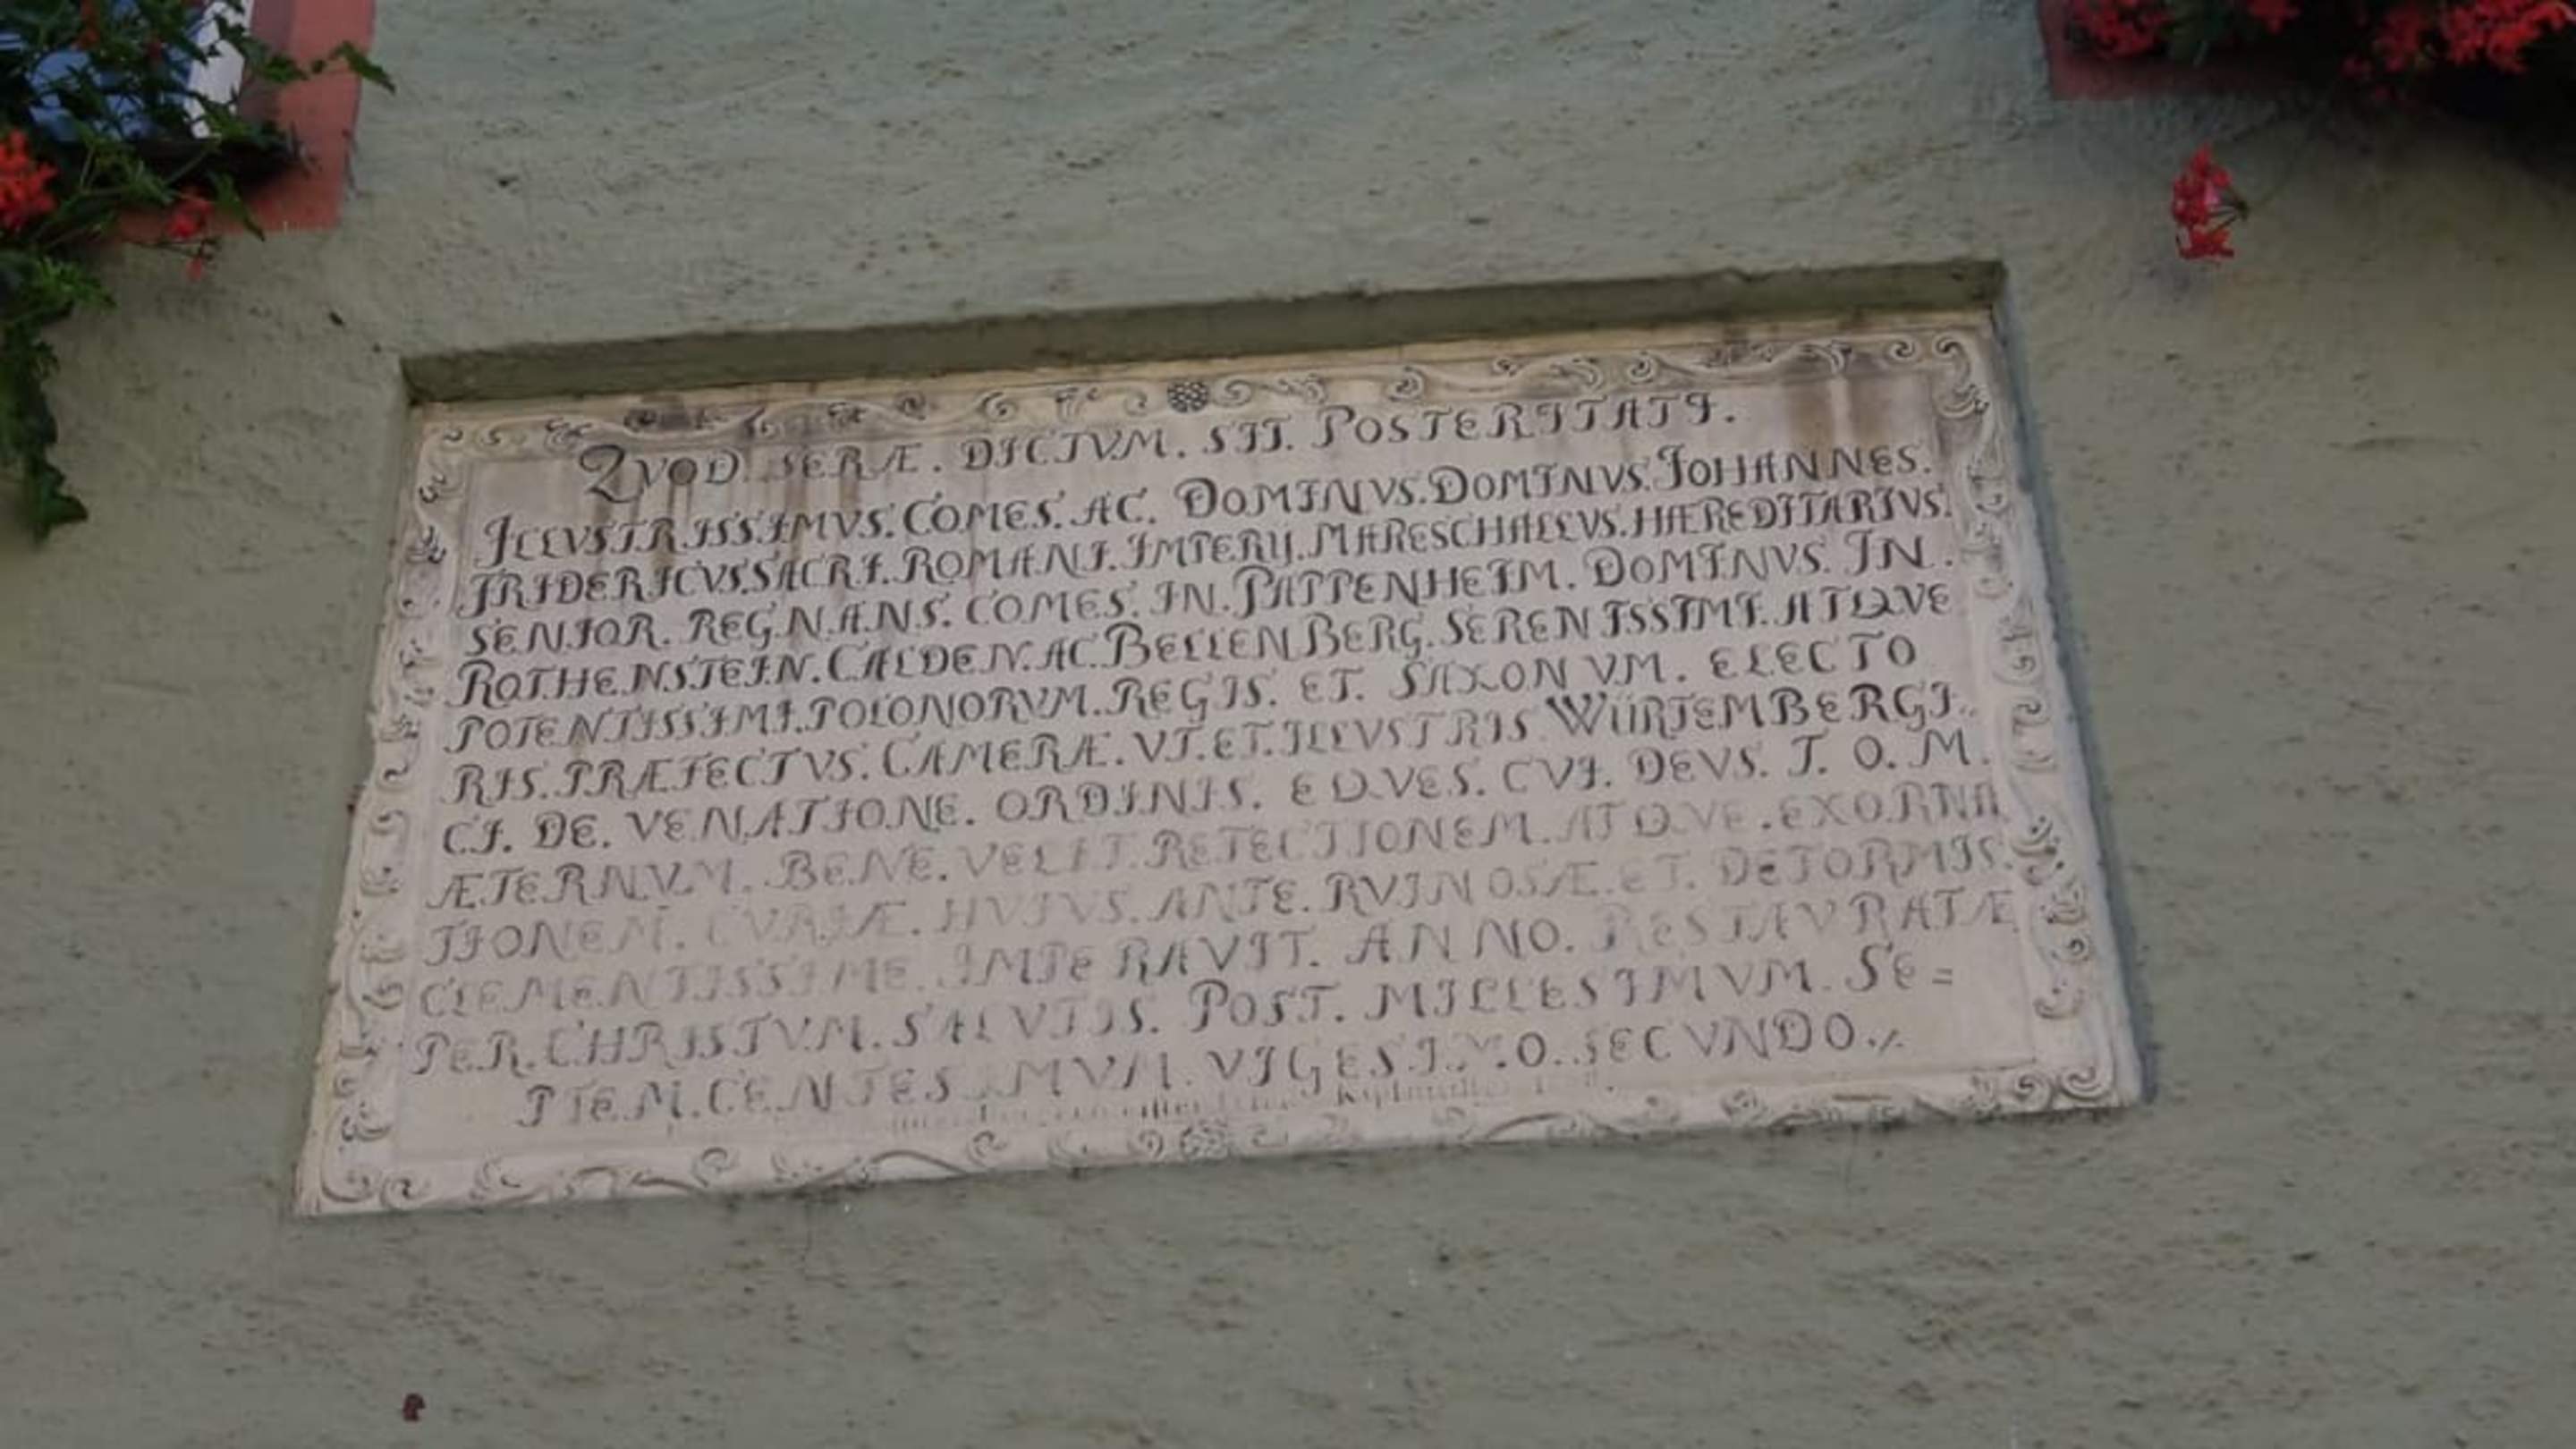 QVOD. SERÆ. DICTVM. SIT. POSTERITATI.
ILLVSTRISSIMVS. COMES. AC. DOMINVS. DOMINVS. IOHANNES.
FRIDERICVS. SACRI. ROMANI. IMPERIJ. MARESCHALLVS. HÆREDITARIVS.
SENIOR. REGNANS. COMES. IN. PAPPENHEIM. DOMINVS. IN.
ROTHENSTEIN. CALDEN. AC. BELLENBERG. SERENISSIMI. ATQVE
POTENTISSIMI. POLONORVM. REGIS. ET. SAXONVM. ELECTO
RIS. PRÆFECTVS. CAMERÆ. VT. ET. ILLVSTRIS WÜRTEMBERGI.
CI. DE. VENATIONE. ORDINIS. EQVES. CVI. DEVS. T. O. M.
ÆTERNVM. BENE. VELIT. RETECTIONEM. ATQVE. EXORNA
TIONEM. CVRIÆ. HVIVS. ANTE. RVINOSÆ. ET. DEFORMIS.
CLEMENTISSIME. IMPERAVIT. ANNO. RESTAVRATÆ
PER. CHRISTVM. SALVTIS. POST. MILLESIMVM. SE=
PTEM. CENTESIMVM. VIGESIMO. SECVNDO.